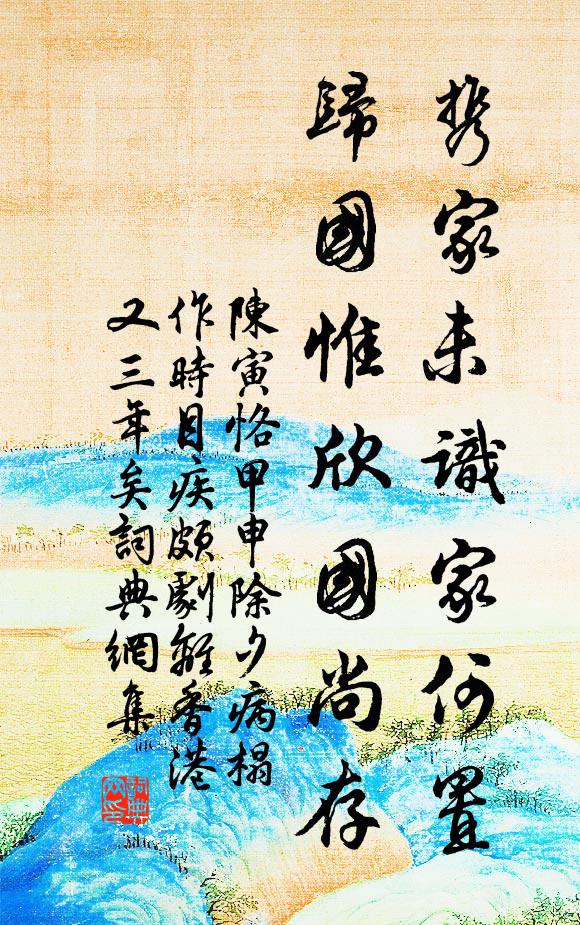 携家未識家何置
歸國惟欣國尚存
陳寅恪甲申除夕病榻
作時目疾頗劇離香港
又三年矣詞典網集